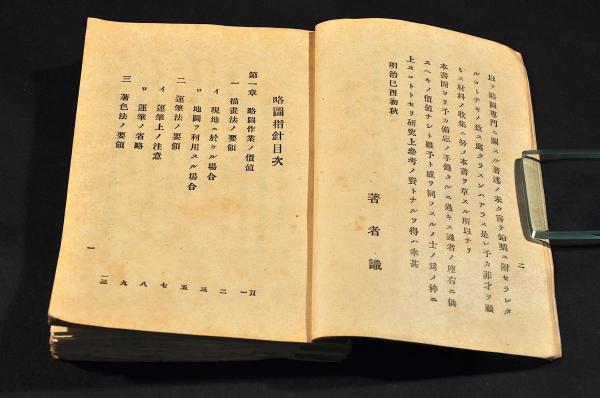 二
以テ略圖專門ニ關スル著述ノ未タ嘗テ鉛槧ニ附セラレタ
ルコトナキノ致ス處タラスンハアラス是レ予カ菲才ヲ顧
ミス材料ノ收集ニ努メ本書ヲ草スル所以ナリ
本書固ヨリ予カ備忘ノ手錄タルニ過キス識者ノ座右ニ供
スヘキノ價値ナシト雖予ト感ヲ同フスルノ士ノ爲メ梓ニ
上スコトトセリ研究上參考ノ資トナルヲ得ハ幸甚
明治己酉初秋
著者識
略圖指針目次
頁
第一章 略圖作業ノ價値 一
一 描畫法ノ要領 二
イ 現地ニ於ケル場合 三
ロ 地圖ヲ利用スル場合 五
二 運筆法ノ要領 七
イ 運筆上ノ注意 八
ロ 運筆ノ省略 九
三 著色法ノ要領
一